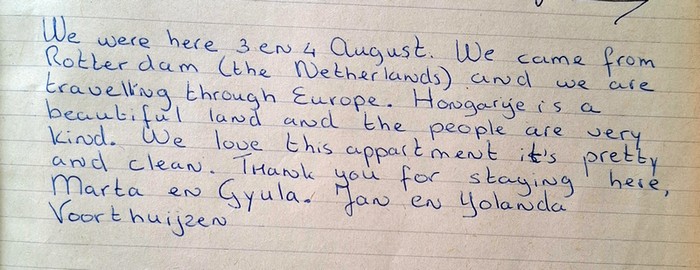 We were here 3 en 4 August. We came from
Rotterdam (the Netherlands) and we are
travelling through Europe. Hongarije is a
beautiful land and the people are very
kind. We love this appartment it's pretty
and clean. Thank you for staying here,
Marta en Gyula. Jan en Yolanda
Voorthuijzen